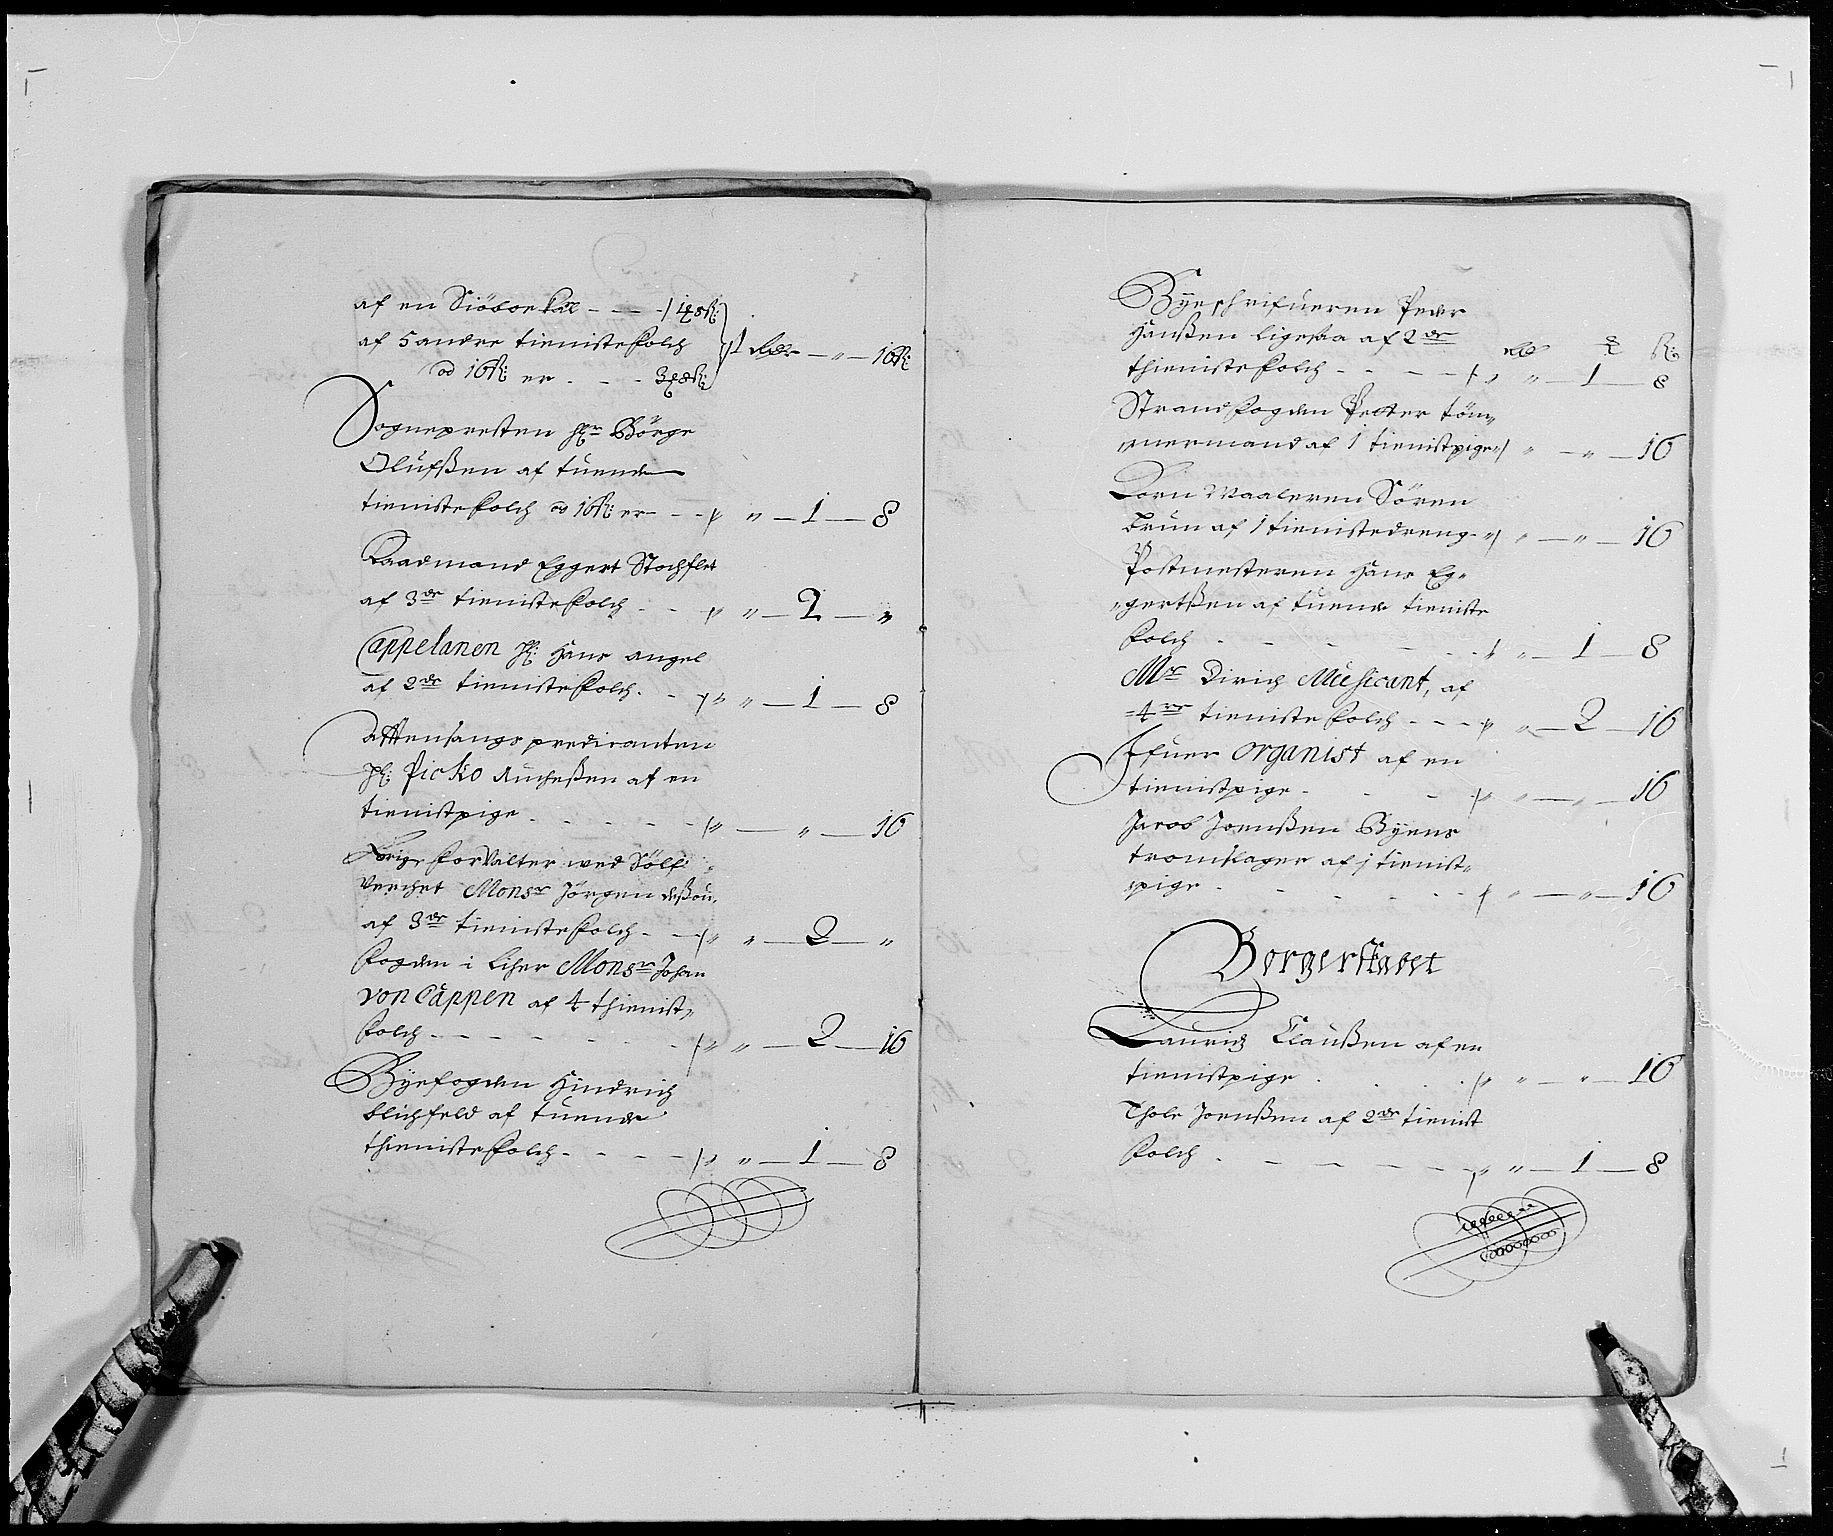 af en Siöboe Karl - - - 1 ꝣ 8 ß:
af 5 andre tieniste folch
od 16 ß: er - - - 3 ꝣ 8 ß: 1 Rdr — " — 16 ß:
Sognepresten Hr Börge
Olufßen af tuende
tienistefolch od 16 ß: er - - " — 1 — 8
Raadmand Eggert Stochflet
af 3de tienistefolch - - " " — 2 — "
Cappelanen H: Hans Angel
af 2de tienistefolch - - " " — 1 — 8
Afftensangs predicanten
H: Picko Aucheßen af en
tienistpige - - - - " — " — 16
forValter wed Sölf
Verchet Monsr Jörgen
af 3de tienistefolch - - " " — 2 — "
fogden i Liher Monsr Johan
von Cappen af 4 thienist,,
folch - - - - - " " — 2 — 16
Byefogden Hindrich
Blichfeld af tuende
thienistefolch - - - - " " — 1 — 8
Byeschrifueren Peder
Hanßen ligesaa af 2de
thienistefolch - - - - " " — 1 — 8
Strandfogden Petter töm,,
mermand af 1 tienistpige " — " — 16
Korn Maaleren Sören
Brun af 1 tienistedreng - " — " — 16
Postmesteren Hans Eg,,
,,gertßen af tuende tieniste
folch - - - - - " — 1 — 8
Mr Dirich Musicant, af
4re tieniste folch - - - " — 2 — 16
Ifuer Organist af en
tienistpige - - - " " — " — 16
Jacob Joenßen Byens
tromslager af 1 tienist,,
pige - - - - - " " — " — 16
Borgerskabet
Lauridz Claußen af en
tienistpige - - - - " " — " — 16
Thole Joenßen af 2de tienist
folch - - - - - - " " — 1 — 8